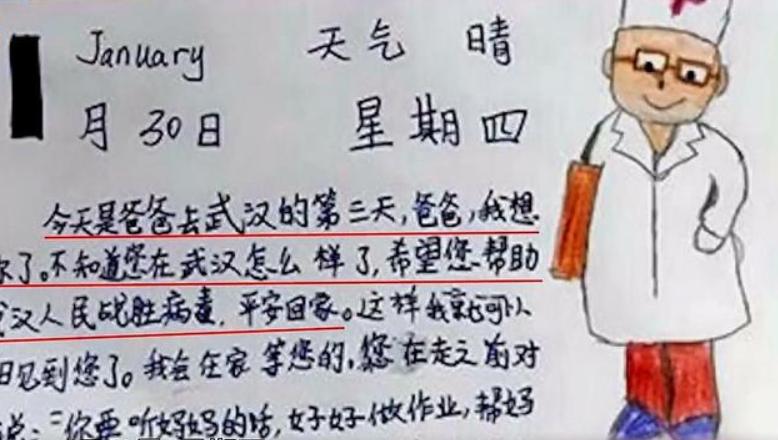 January 天气 晴
月30日 星期四
今天是爸爸去武汉的第三天，爸爸，我想
你了。不知道您在武汉怎么样了，希望您帮助
武汉人民战胜病毒，平安回家。这样我就可以
日见到您了。我会在家等您的，您在走之前对
说：“你要听妈妈的话，好好做作业，帮妈